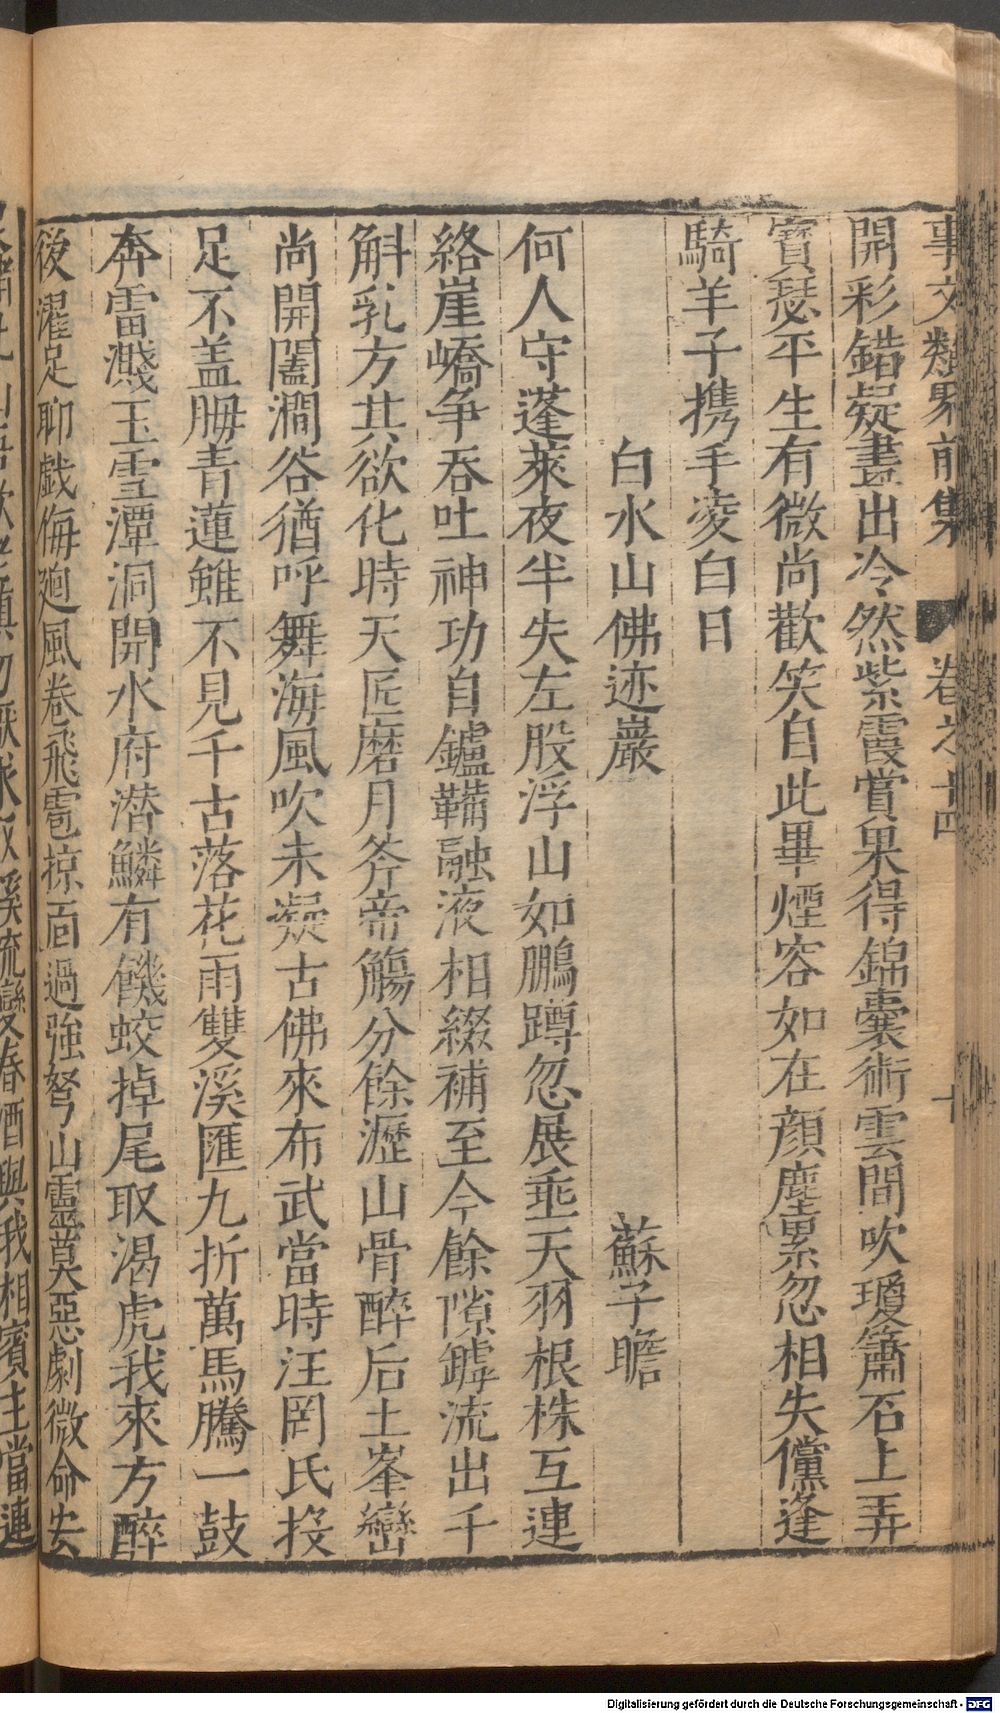 事文類聚前集 卷之十四 十
開彩錯疑畫出冷然紫霞賞果得錦囊術雲間吹瓊簫石上弄
寶瑟平生有微尚歡笑自此畢煙容如在顔塵累忽相失儻逢
騎羊子攜手凌白日
白水山佛迹巖 蘇子瞻
何人守蓬萊夜半失左股浮山如鵬蹲忽展垂天羽根株互連
絡崖嶠争吞吐神功自鑪鞴融液相綴補至今餘隙罅流出千
斛乳方其欲化時天匠磨月斧帝觴分餘瀝山骨醉后土峯巒
尚開闔澗谷猶呼舞海風吹未凝古佛來布武當時汪罔氏投
足不盖胟青蓮雖不見千古落花雨雙溪匯九折萬馬騰一鼓
奔雷濺玉雪潭洞開水府潜鱗有饑蛟掉尾取渴虎我來方醉
後濯足聊戲侮廻風卷飛雹掠面過強弩山靈莫惡劇微命安
溪流變春酒與我相賓主當連
Digitalisierung gefördert durch die Deutsche Forschungsgemeinschaft - DFG